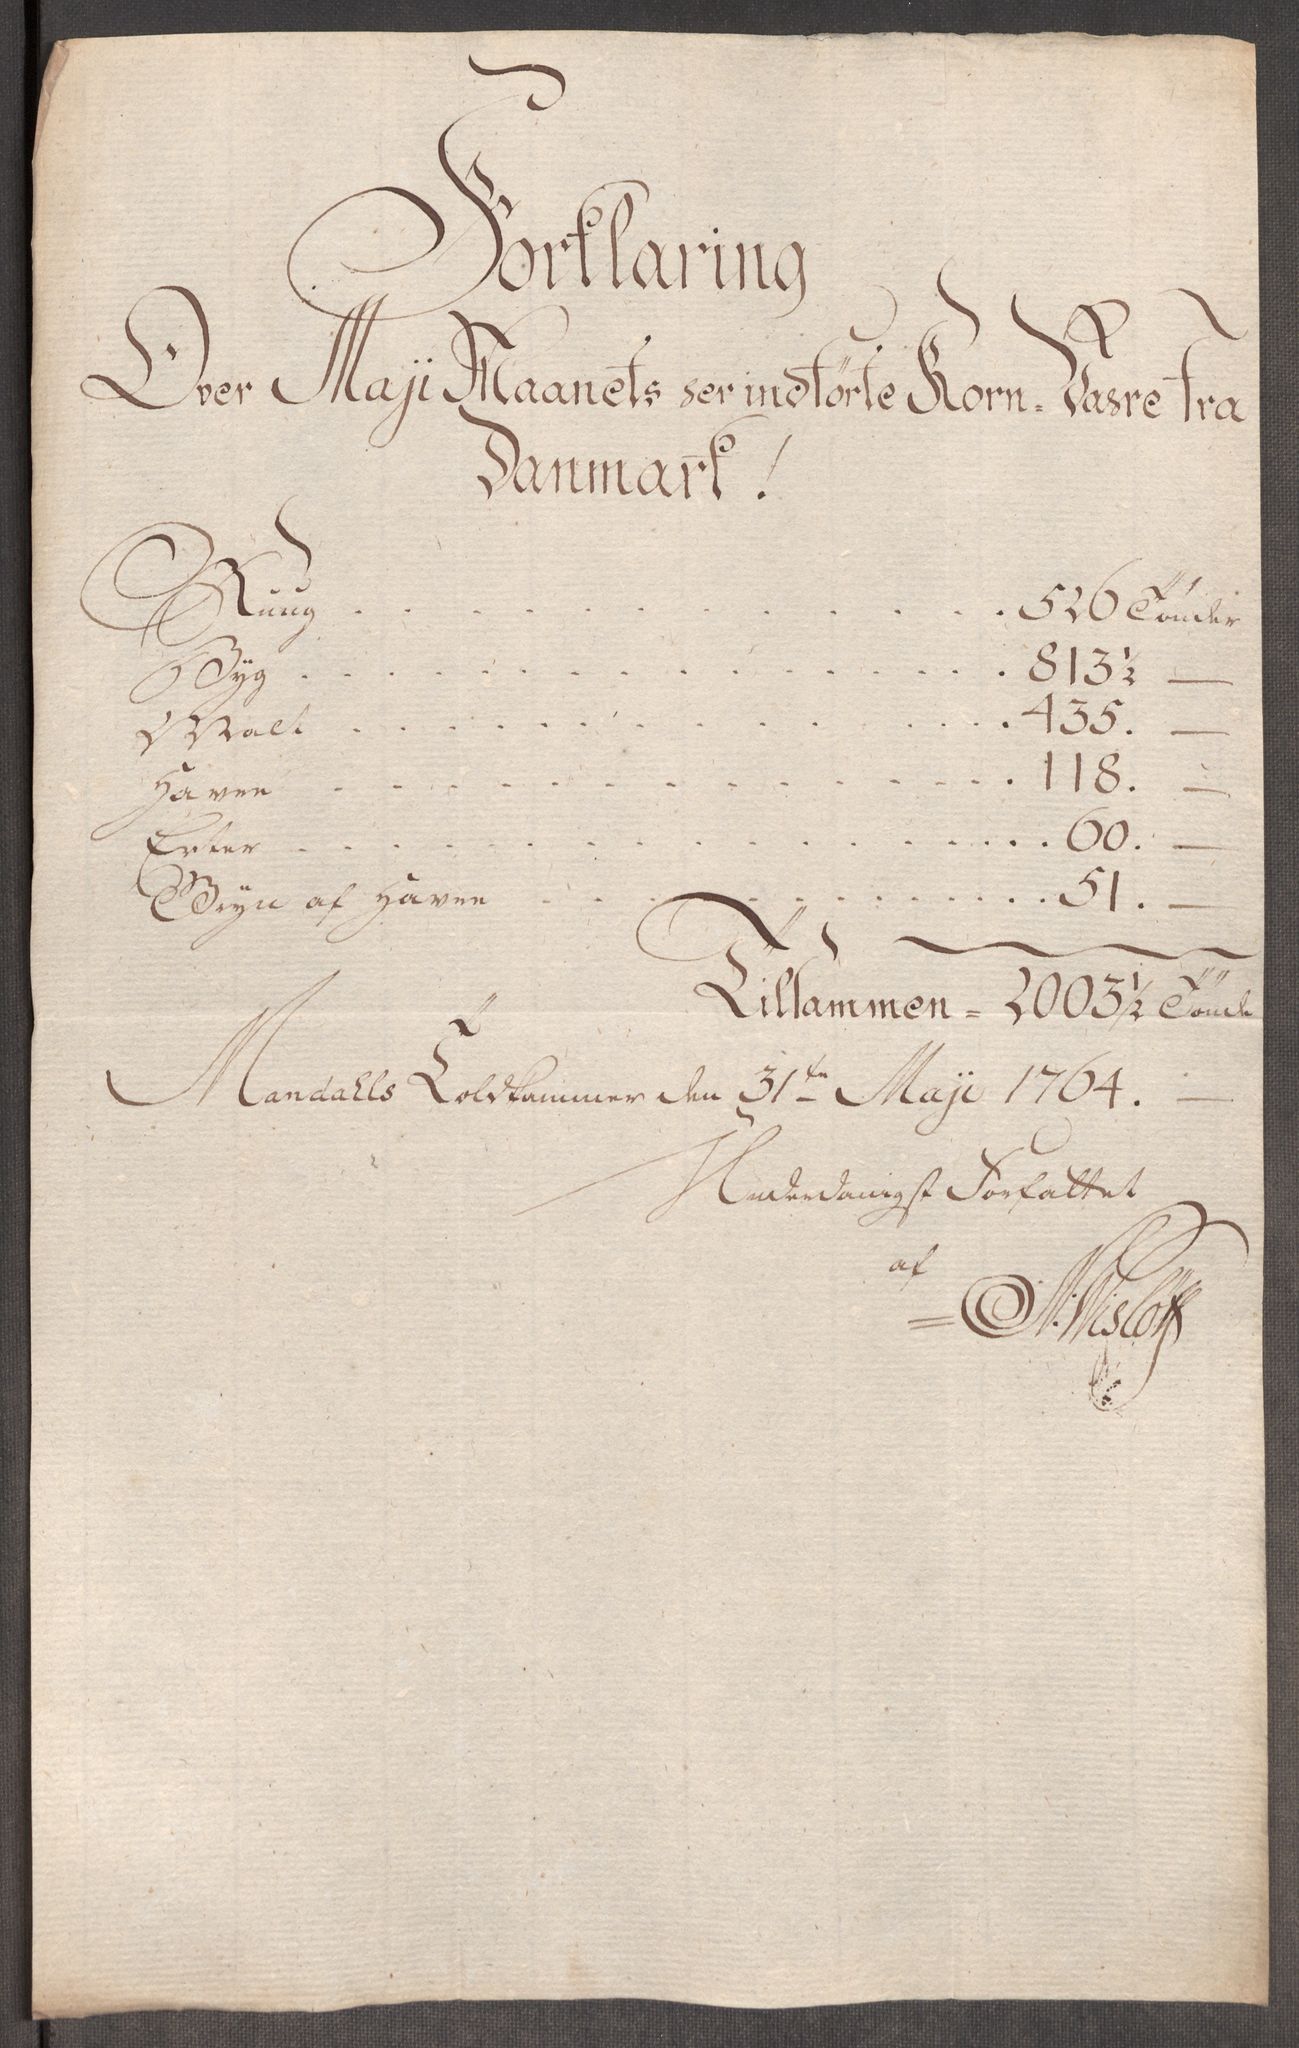 Forklaring
Over Maji Maanets her indførte Korn-Vahre fra
Danmark!
Ruug . . . . . . . . . . . . . . 526 Tönder
Byg . . . . . . . . . . . . . . . 813½ —
Malt . . . . . . . . . . . . . . 435. —
Havre . . . . . . . . . . . . . . 118. —
Erter . . . . . . . . . . . . . . . 60. —
Gryn af Havre . . . . . . . . . . . 51. —
Tilsammen = 2003½ Tönde
Mandahls Toldkammer den 31te Maji 1764. —
Underdanigst Forfattet
af